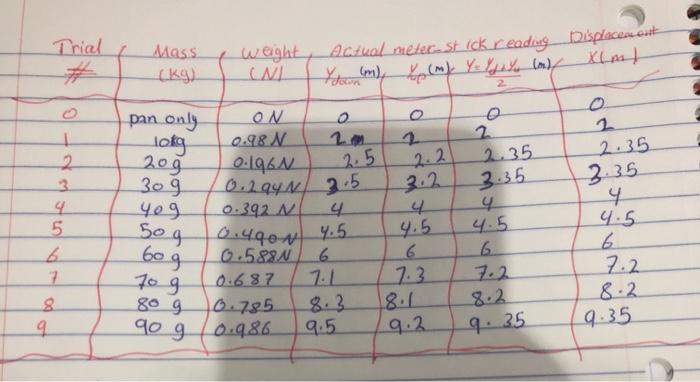 Trial Mass Weight Actual meter-stick reading Displacement
# (Kg) (N) Ydown (m) Yup (m) Y=Yd+Yu/2 (m) X(m)
0 pan only 0N 0 0 0 0
1 10kg 0.98N 2 2 2 2
2 20g 0.196N 2.5 2.2 2.35 2.35
3 30g 0.294N 3.5 3.2 3.35 3.35
4 40g 0.392 N 4 4 4 4
5 50g 0.490N 4.5 4.5 4.5 4.5
6 60g 0.588N 6 6 6 6
7 70g 0.687 7.1 7.3 7.2 7.2
8 80g 0.785 8.3 8.1 8.2 8.2
9 90g 0.986 9.5 9.2 9.35 9.35